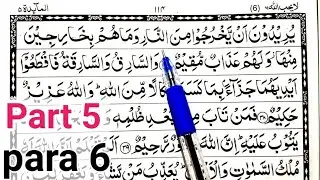 لا يحب الله (6)
١١٤
المآئدة ٥
يُرِيْدُوْنَ اَنْ يَّخْرُجُوْا مِنَ النَّارِ وَمَا هُمْ بِخٰرِجِيْنَ
مِنْهَا وَلَهُمْ عَذَابٌ مُّقِيْمٌ وَالسَّارِقُ وَالسَّارِقَةُ فَاقْطَعُوْۤا
اَيْدِيَهُمَا جَزَآءًۢ بِمَا كَسَبَا نَكَالًا مِّنَ اللّٰهِ وَاللّٰهُ عَزِيْزٌ
حَكِيْمٌ فَمَنْ تَابَ مِنْۢ بَعْدِ ظُلْمِهٖ
Part 5
يَتُوْبُ عَلَيْهِ اِنَّ اللّٰهَ غَفُوْرٌ رَّحِيْمٌ
para 6
مُلْكُ السَّمٰوٰتِ وَالْاَرْضِ يُعَذِّبُ مَنْ